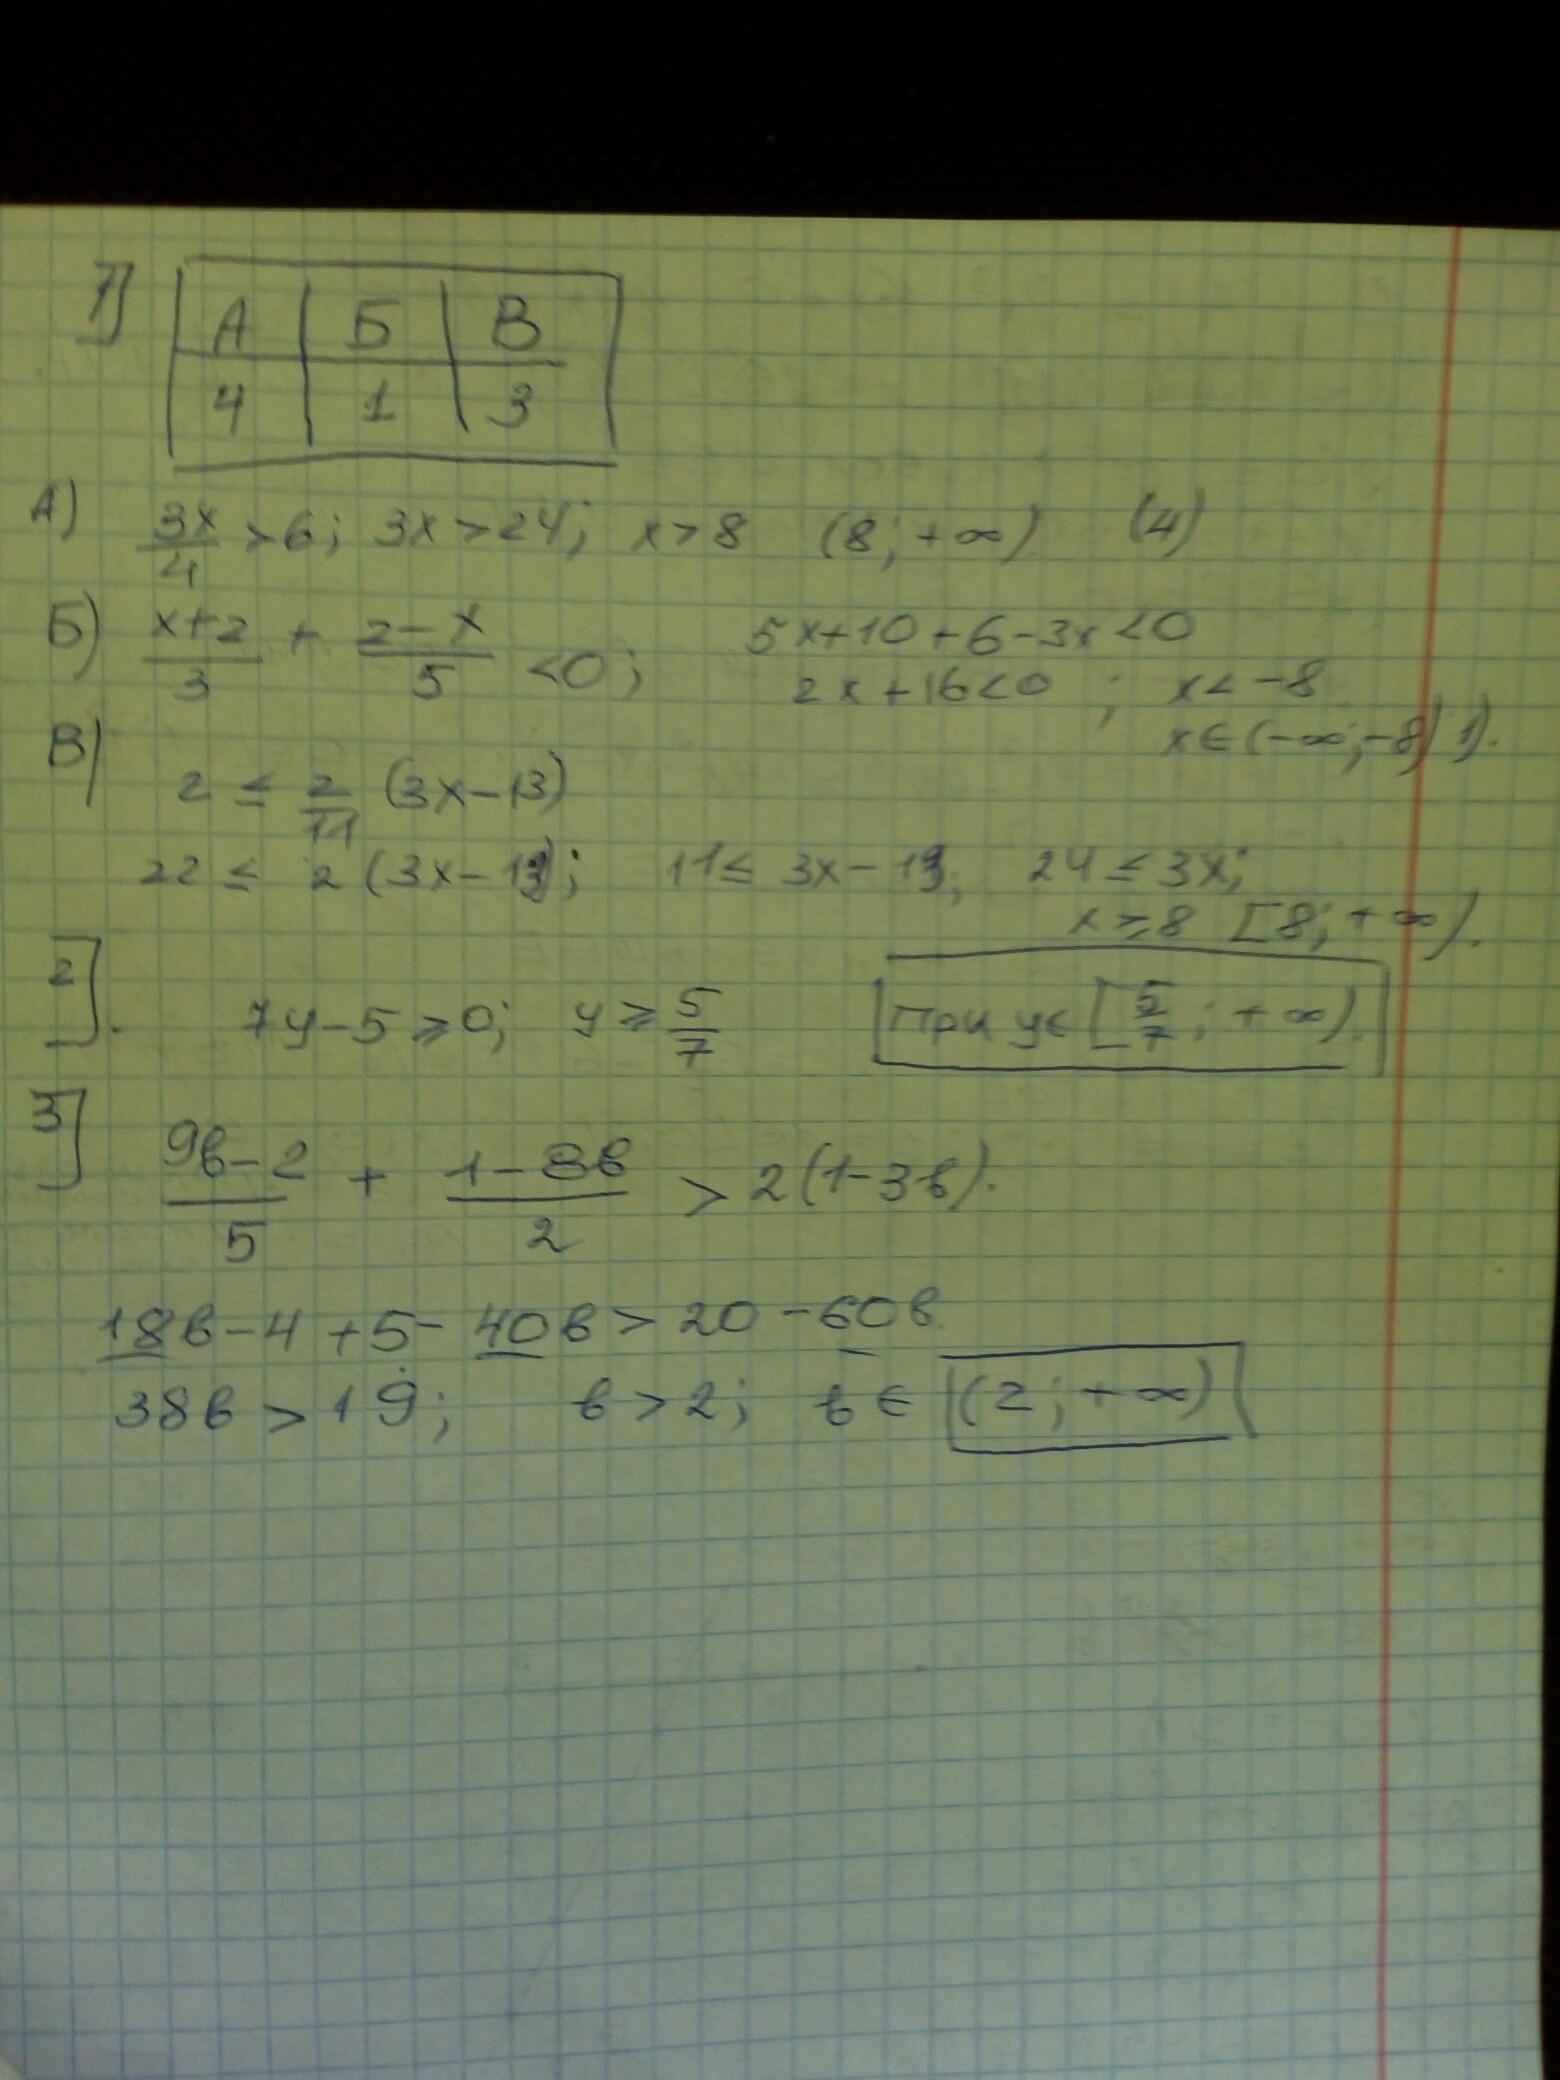 1]
А | Б | В
4 | 1 | 3
А) 3x/4 > 6; 3x > 24; x > 8 (8; +∞) (4)
Б) x+2/3 + 2-x/5 < 0; 5x+10+6-3x < 0
2x+16<0 ; x < -8
x ∈ (-∞; -8) 1).
В) 2 ≤ 2/11 (3x-13)
22 ≤ 2 (3x-13); 11 ≤ 3x-13; 24 ≤ 3x;
x ≥ 8 [8; +∞).
2]. 7y-5 ≥ 0; y ≥ 5/7 При y ∈ [5/7; +∞).
3] 9b-2/5 + 1-8b/2 > 2(1-3b).
18b-4+5-40b > 20-60b.
38b > 19; b > 2; b ∈ (2; +∞)